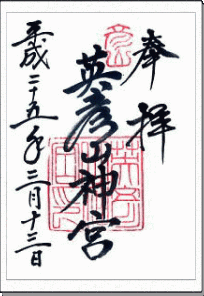 奉拝
英彦山神宮
平成二十五年三月十三日